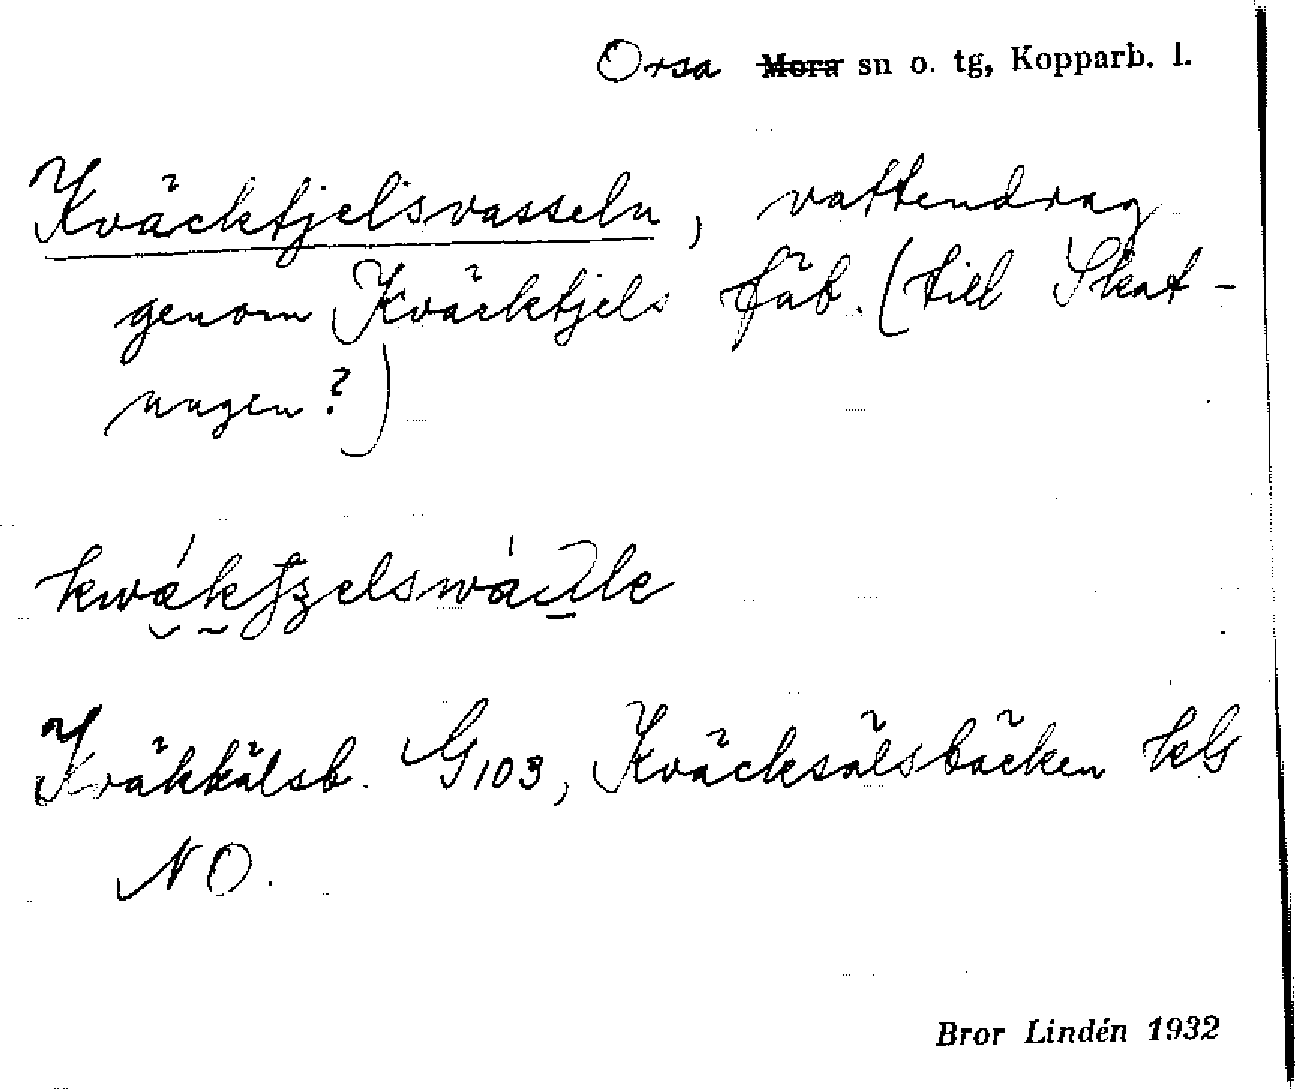 Orsa ~~Mora~~ sn o. tg, Kopparb. l.
Kväcktjelsvasseln, vattendrag
genom Kväcktjels fäb. (till Skat-
ungen?)
Kväkkälsb. G103, Kväcksälsbäcken kG
NO.
Bror Lindén 1932